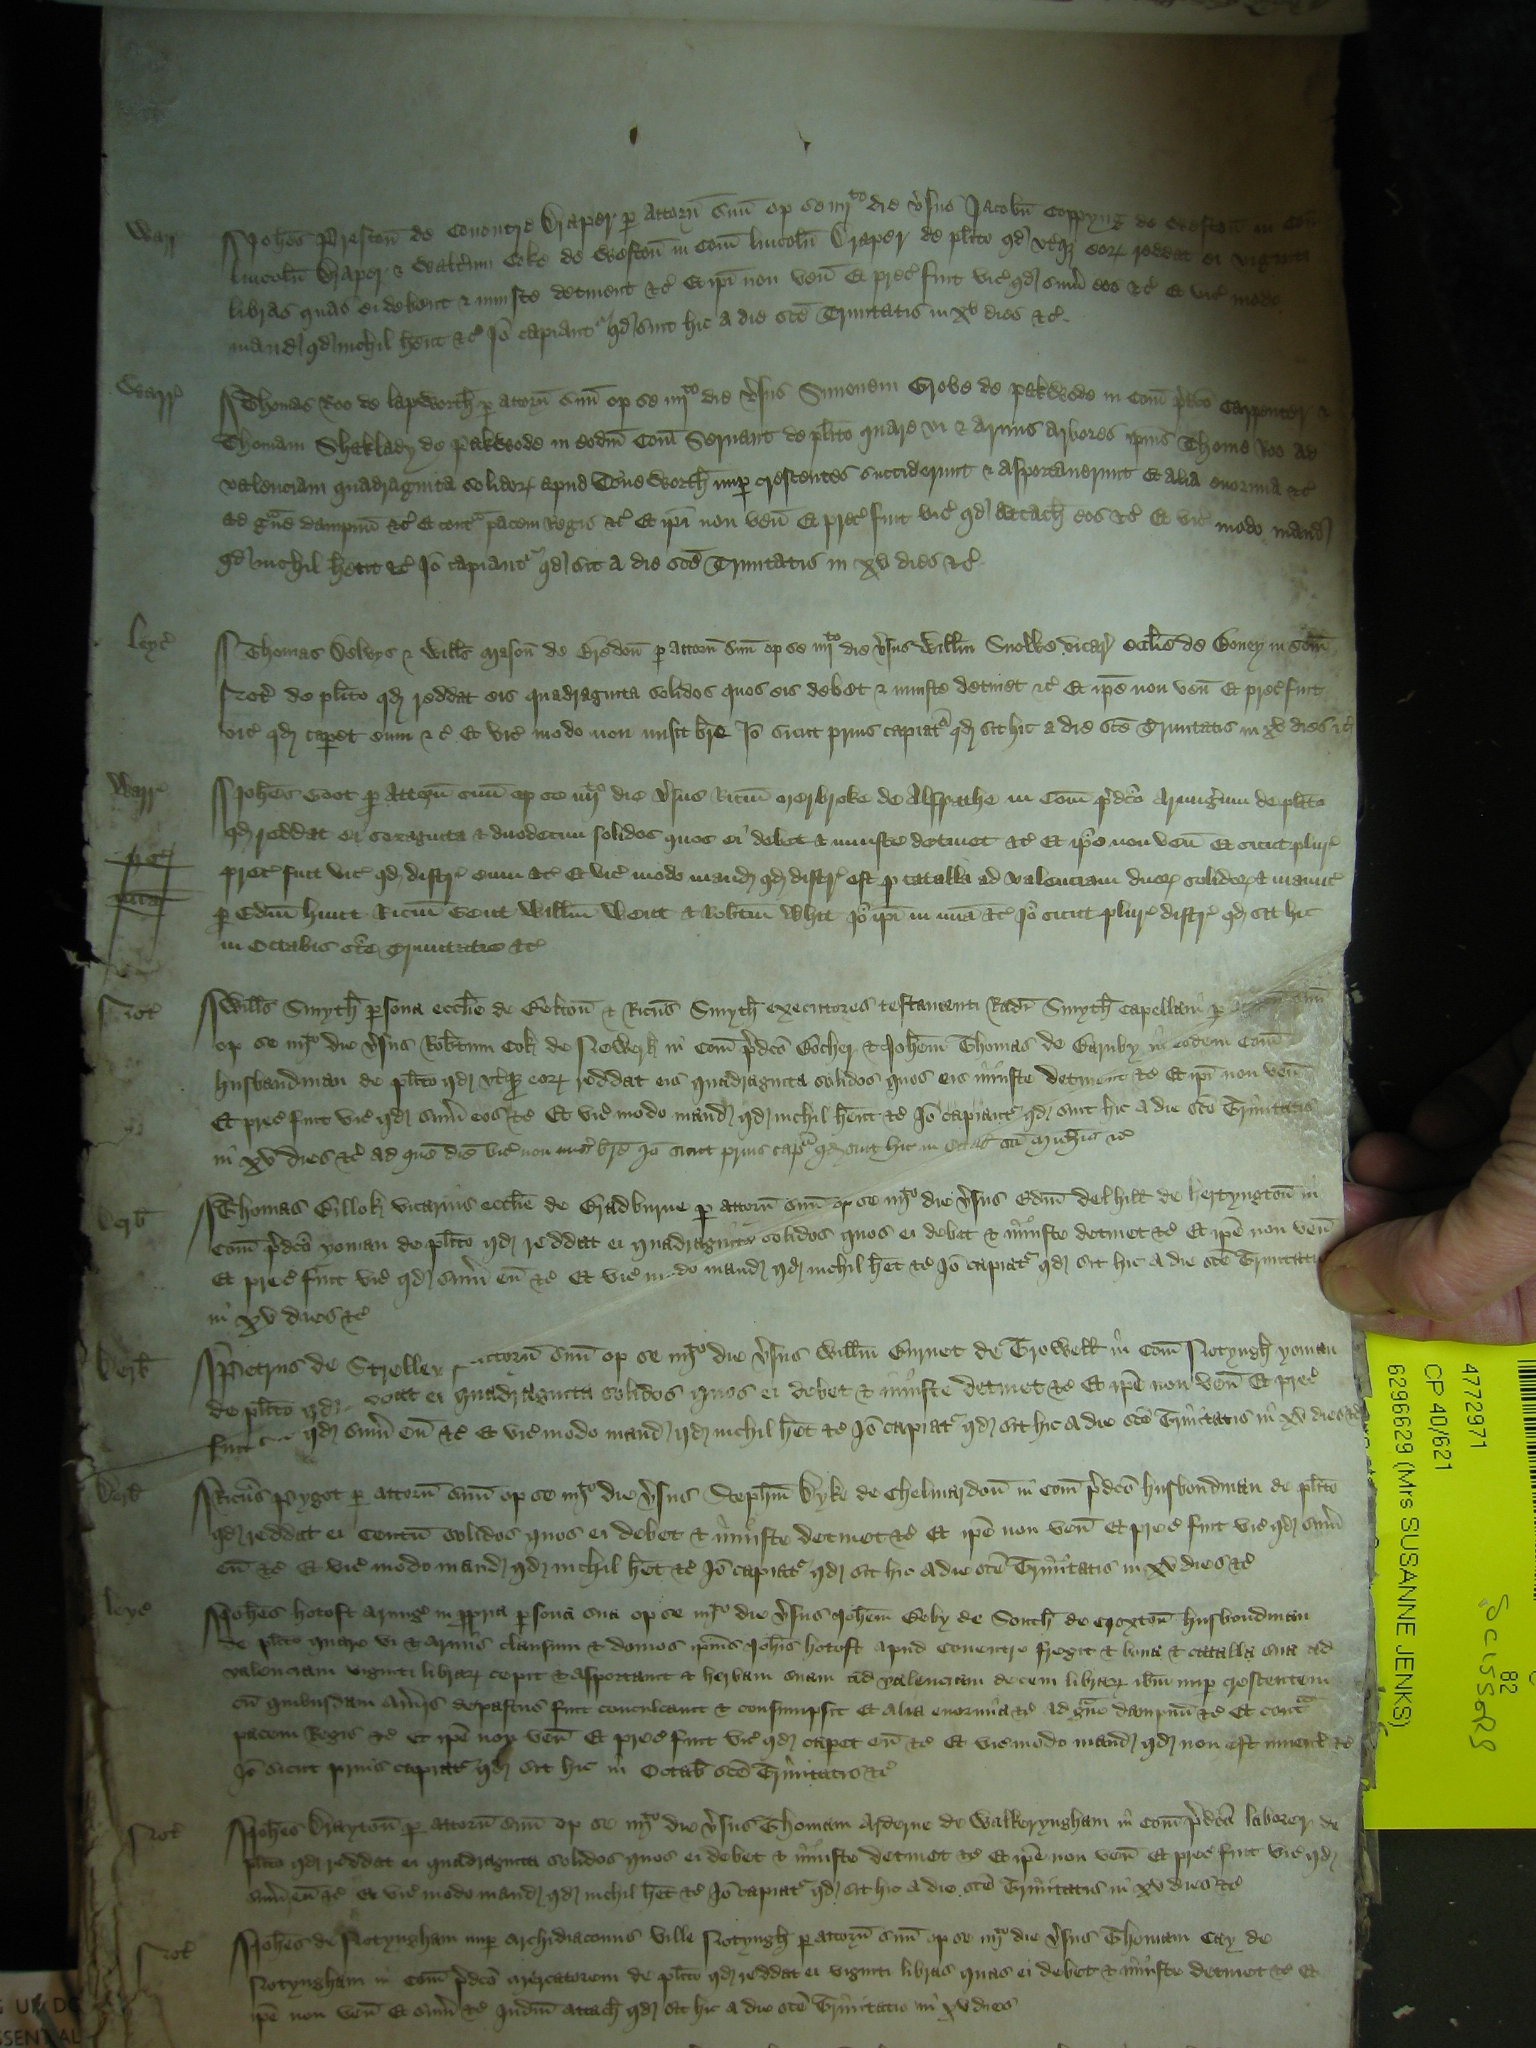 Warr Joh̄es Prestoñ de Couentre Draper p attorñ suū op se iiijto die v̄sus Jacobū Coppyng de Westoñ in Com̄
lincolñ Draper & Walt̄um Coke de Westoñ in Com̄ lincolñ Draper de pl̄ito qd vt̄qȝ eorȝ reddat ei viginti
libras quas ei debent & iniuste detinent &c̄ Et ip̄i non veñ Et prec̄ fuit vic̄ qd sum̄ eos &c̄ Et vic̄ modo
mand qd nichil hēnt &c̄ Iō capiant̄ qd sint hic a die sc̄e Trinitatis in xv dies &c̄
Warr̄ Thomas Roo de lapworth p attorñ suū op se iiijto die v̄sus Simonem Grobe de Pakwode in Com̄ p̄dc̄o Carpenter &
Thomam Shaklady de Pakwode in eodm̄ Com̄ Seruant de pl̄ito quare vi & armis arbores ip̄ius Thome Roo ad
valenciam quadraginta solidorȝ apud Toneworth nup crescentes succiderunt & asportauerunt Et alia enormia &c̄
ad gūe dampnū &c̄ Et cont̄ pacem Regis &c̄ Et ip̄i non veñ Et prec̄ fuit vic̄ qd attach eos &c̄ Et vic̄ modo mand
qd nichil hēnt &c̄ Iō capiant̄ qd sit a die sc̄e Trinitatis in xv dies &c̄
leyc̄ Thomas Deluys & Wills̄ Mason̄ de Bredoñ p attorñ suū op se iiijto die v̄sus Willm̄ vicar eccl̄ie de Boney in Com̄
Not̄ de pl̄ito qd reddat eis quadraginta solidos quos eis debet & iniuste detinet &c̄ Et ip̄e non veñ Et prec̄ fuit
vic̄ qd capet eum &c̄ Et vic̄ modo non misit br̄e Iō sicut prius capiat̄ qd sit hic a die sc̄e Trinitatis in xv dies &c̄
Warr̄ Joh̄es Goot p attorñ suū op se iiijto die v̄sus Ricm̄ Merbroke de Alspathe in Com̄ p̄dc̄o Armig̃um de pl̄ito
qd reddat ei sexaginta & duodecim solidos quos ei debet & iniuste detinet &c̄ Et ip̄e non veñ Et sicut plur̄
prec̄ fuit vic̄ qd distr̄ eum &c̄ Et vic̄ modo mand qd distr̄ est p catalla ad valenciam duorȝ solidorȝ & manuc̄
p Edm̄ hunt Ricm̄ Gent Willm̄ Went & Robtm̄ Whit Iō ip̄i in m̄ia &c̄ Iō sicut plur̄ distr̄ qd sit hic
in Octabis sc̄e Trinitatis &c̄
Not̄ Wills̄ Smyth psona eccl̄ie de & Ricūs Smyth executores testamenti Radi Smyth Capellani p
op se iiijto die v̄sus Robtum Cok de Newerk in Com̄ p̄dc̄o Bocher & Joh̄em Thomas de Barnby in eodem Com̄
husbandman de pl̄ito qd vt̄qȝ eorȝ reddat eis quadraginta solidos quos eis iniuste detinent &c̄ Et ip̄i non veñ
Et prec̄ fuit vic̄ qd sum̄ eos &c̄ Et vic̄ modo mand qd nichil hēnt &c̄ Iō capiant̄ qd sint hic a die sc̄e Trinitatis
in xv dies &c̄ ad quē diē vic̄ non mis̄ br̄e Iō sicut prius capt̄ qd sint hic in sc̄i Mich̄is &c̄
Derb̄ Thomas Gillok vicarius eccl̄ie de Bradburne p attorñ suū op se iiijto die v̄sus Edm̄ del hill de hertyngtoñ in
Com̄ p̄dc̄o yoman de pl̄ito qd reddat ei quadraginta solidos quos ei debet & iniuste detinet &c̄ Et ip̄e non veñ
Et prec̄ fuit vic̄ qd sum̄ eū &c̄ Et vic̄ modo mand qd nichil hēt &c̄ Iō capiat̄ qd sit hic a die sc̄e Trinitatis
in xv dies &c̄
Derb̄ Petrus de Strelley attorñ suū op se iiijto die v̄sus Willm̄ Burnet de Trowell in Com̄ Notyngh yoman
de pl̄ito qd reddat ei quadraginta solidos quos ei debet & iniuste detinet &c̄ Et ip̄e non veñ Et prec̄
fuit qd sum̄ eū &c̄ Et vic̄ modo mand qd nichil hēt &c̄ Iō capiat̄ qd sit hic a die sc̄e Trinitatis in xv dies &c̄
Derb̄ Ricūs Pygot p attorñ suū op se iiijto die v̄sus Steph̄m Dyke de Chelmardoñ in Com̄ p̄dc̄o husbondman de pl̄ito
qd reddat ei Centū solidos quos ei debet & iniuste detinet &c̄ Et ip̄e non veñ Et prec̄ fuit vic̄ qd sum̄
eū &c̄ Et vic̄ modo mand qd nichil hēt &c̄ Iō capiat̄ qd sit hic a die sc̄e Trinitatis in xv dies &c̄
leyc̄ Joh̄es hotoft Armig̃ in ppria psona sua op se iiijto die v̄sus Joh̄em Goby de South de Croxtoñ husbondman
de pl̄ito quare vi & armis clausum & domos ip̄ius Joh̄is hotoft apud Couentre fregit & bona & catalla sua ad
valenciam viginti librarȝ cepit & asportauit & herbam suam ad valenciam decem librarȝ ib̄m nup crescentem
cū quibusdam au̅iis depastus fuit conculcauit & consumpsit Et alia enormia &c̄ ad gūe dampnū &c̄ Et cont̄
pacem Regis &c̄ Et ip̄e non veñ Et prec̄ fuit vic̄ qd capet eū &c̄ Et vic̄ modo mand qd non est inuent̄ &c̄
Iō sicut prius capiat̄ qd sit hic in Octab̄ sc̄e Trinitatis &c̄
Not̄ Joh̄es Draytoñ p attorñ suū op se iiijto die v̄sus Thomam Arderne de Walkeryngham in Com̄ p̄dc̄o laborer de
pl̄ito qd reddat ei quadraginta solidos quos ei debet & iniuste detinet &c̄ Et ip̄e non veñ Et prec̄ fuit vic̄ qd
sum̄ eū &c̄ Et vic̄ modo mand qd nichil hēt &c̄ Iō capiat̄ qd sit hic a die sc̄e Trinitatis in xv dies &c̄
Not̄ Joh̄es de Notyngham nup Archidiaconus ville Notyngh p attorñ suū op se iiijto die v̄sus Thomam Cay de
Notyngham in Com̄ p̄dc̄o Mercatorem de pl̄ito qd reddat ei viginti libras quas ei debet & iniuste detinet &c̄ Et
ip̄e non veñ Et sum̄ &c̄ Iudm̄ attach qd sit hic a die sc̄e Trinitatis in xv dies
4772971
CP 40/621
62966629 (Mrs SUSANNE JENKS)
82
SCISSORS